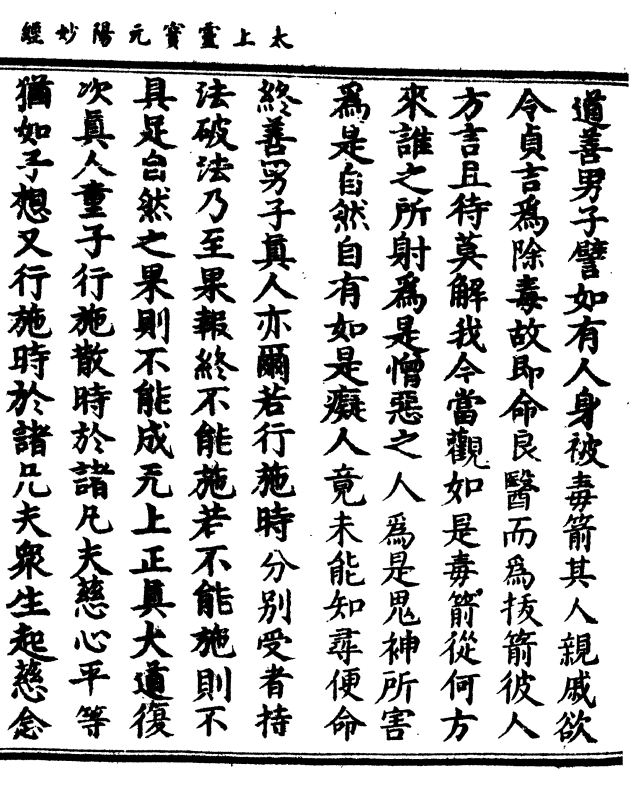 太上靈寶元陽妙經
道善男子譬如有人身被毒箭其人親戚欲
令貞吉爲除毒故即命良醫而爲拔箭彼人
方言且待莫解我今當觀如是毒箭從何方
來誰之所射爲是憎惡之人爲是鬼神所害
爲是自然自有如是癡人竟未能知尋便命
終善男子眞人亦爾若行施時分別受者持
法破法乃至果報終不能施若不能施則不
具足自然之果則不能成无上正眞大道復
次眞人童子行施散時於諸凡夫慈心平等
猶如子想又行施時於諸凡夫衆生起慈念